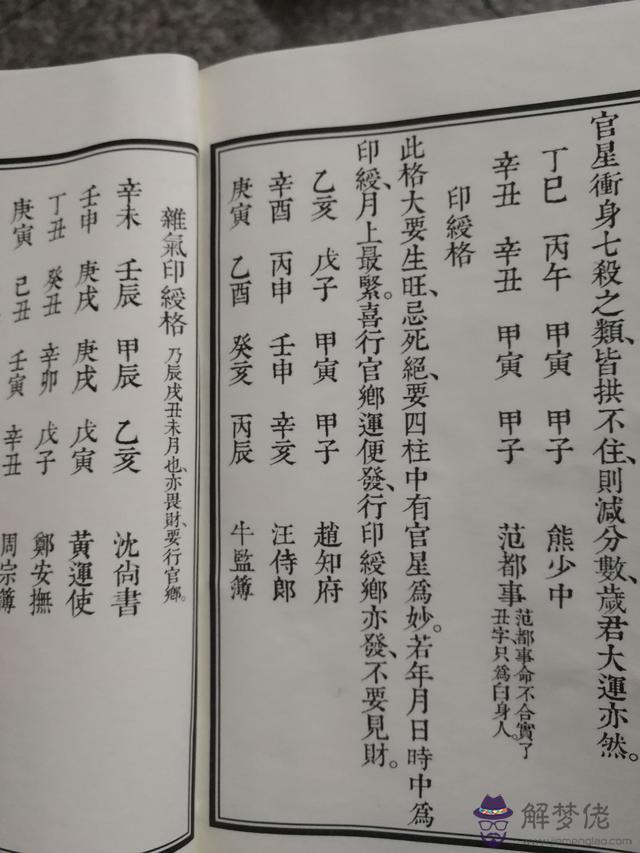 官星衝身七殺之類、皆拱不住、則減分數、歲君大運亦然。
丁巳 丙午 甲寅 甲子 熊少中
辛丑 辛丑 甲寅 甲子 范都事 范都事命不合實了丑字、只為白身人。
印綬格
此格大要生旺、忌死絕、要四柱中有官星為妙。若年月日時中為
印綬、月上最緊。喜行官鄉運便發、行印綬鄉亦發、不要見財。
乙亥 戊子 甲寅 甲子 趙知府
辛酉 丙申 壬申 辛亥 汪侍郎
庚寅 乙酉 癸亥 丙辰 牛監簿
雜氣印綬格 乃辰戌丑未月也、亦畏財、要行官鄉。
辛未 壬辰 甲辰 乙亥 沈尙書
壬申 庚戌 庚戌 戊寅 黃運使
丁丑 癸丑 辛卯 戊子 鄭安撫
庚寅 己丑 壬寅 辛丑 周宗簿
解梦佬
www.jiemenglao.com